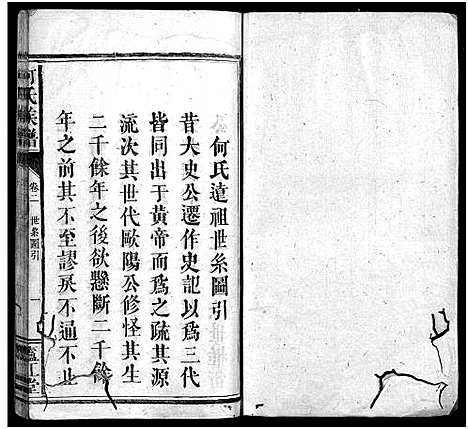 何氏遠祖世系圖引
昔大史公遷作史記以爲三代
皆同出于黃帝而爲之疏其源
流次其世代歐陽公修怪其生
二千餘年之後欲懸斷二千餘
年之前其不至謬戾不通不止
何氏族譜
卷二
世系圖引
一
廬江堂